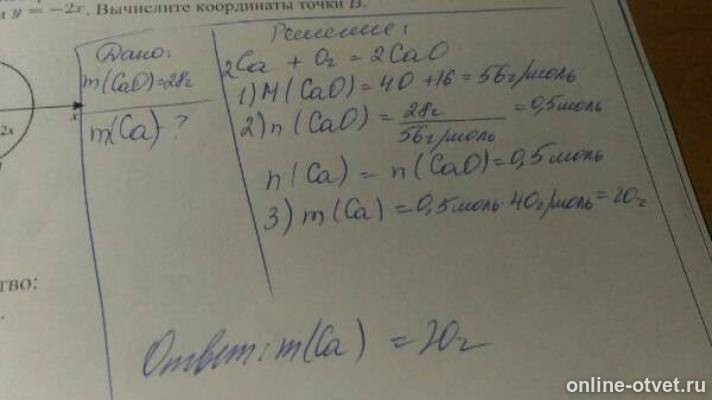 и y = −2x. Вычислите координаты точки B.
Дано:
m(CaO)=28г
m(Ca) - ?
Решение:
2Ca + O₂ = 2CaO
1) M(CaO) = 40 + 16 = 56г/моль
2) n(CaO) = 28г / 56г/моль = 0,5моль
n(Ca) = n(CaO) = 0,5 моль
3) m(Ca) = 0,5 моль · 40г/моль = 20г
Ответ: m(Ca) = 20г
x
2x
тво:
online-otvet.ru